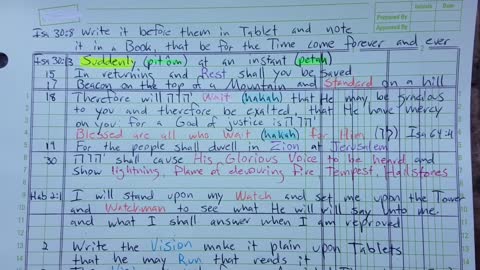 Initials Date
Prepared By
Approved By
Isa 30:8 Write it before them in Tablet and note
it in a Book, that be for the Time come forever and ever
Isa 30:13 Suddenly (pit'om) at an instant (petah)
15 In returning and Rest shall you be saved
17 Beacon on the top of a Mountain and Standard on a hill
18 Therefore will יהוה Wait (hakah) that He may be gracious
to you and therefore be exalted that He have mercy
on you for God of justice is יהוה
Blessed are all who Wait (hakah) for Him Isa 64:4
19 For the people shall dwell in Zion at Jerusalem
30 יהוה shall cause His Glorious Voice to be heard and
show lightning, Flame of devouring Fire Tempest, Hailstones
Hab 2:1 I will stand upon my Watch and set me upon the Tower
and Watchman to see what He will say unto me
and what I shall answer when I am reproved
2 Write the Vision make it plain upon Tablets
that he may Run that reads it